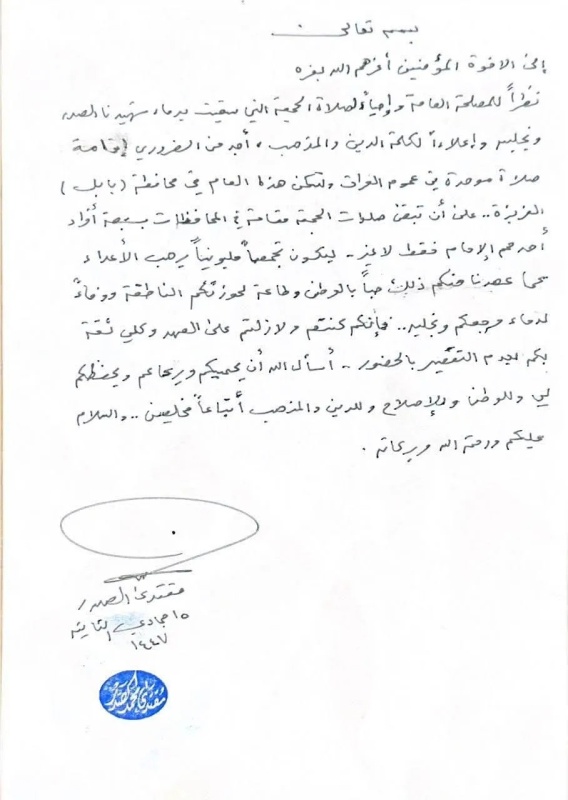 بسمه تعالى
إلى الاخوة المؤمنين أعزهم الله بعزه
نظراً للمصلحة العامة وإحياءً لصلاة الجمعة التي سقيت بدماء شهيدنا الصدر
ونجليه وإعلاءً لكلمة الدين والمذهب ، أجد من الضروري إقامة
صلاة موحدة في عموم العراق ولتكن هذا العام في محافظة (بابل)
العزيزة .. على أن تبقى صلوات الجمعة مقامة في المحافظات بسبعة أفراد
أحدهم الإمام فقط لا غير .. ليكون تجمعاً مليونياً يرهب الأعداء
كما عهدنا منكم ذلك حباً بالوطن وطاعة لحوزتكم الناطقة ووفاءً
لدماء مرجعكم ونجليه .. فإنكم كنتم ولازلتم على العهد وكلي ثقة
بكم لعدم التقصير بالحضور .. أسأل الله أن يحميكم ويرعاكم ويحفظكم
لي وللوطن وللإصلاح وللدين والمذهب أتباعاً مخلصين .. والسلام
عليكم ورحمة الله وبركاته .
مقتدى الصدر
١٥ جمادي الثانية
١٤٤٧
مقتدى محمد الصدر